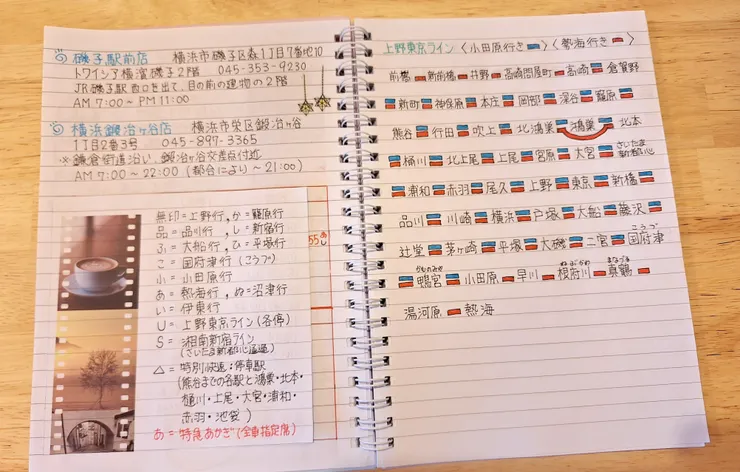 磯子駅前店 横浜市磯子区森1丁目7番地10
トワイシア横濱磯子2階 045-353-9230
JR磯子駅西口を出て、目の前の建物の2階
AM 7:00～PM 11:00
横浜鍛冶ヶ谷店 横浜市栄区鍛冶ヶ谷
1丁目2番3号 045-897-3365
※鎌倉街道沿い、鍛冶ヶ谷交差点付近
AM 7:00～22:00 (都合により～21:00)
無印=上野行, か=籠原行
品=品川行, し=新宿行
ふ=大船行, ひ=平塚行
こ=国府津行 (こうづ)
小=小田原行
あ=熱海行, ぬ=沼津行
い=伊東行
U=上野東京ライン(各停)
S=湘南新宿ライン
(さいたま新都心通過)
△=特別快速:停車駅
(熊谷までの各駅と鴻巣・北本・
桶川・上尾・大宮・浦和・
赤羽・池袋)
あ=特急あかぎ(全車指定席)
55
上野東京ライン (小田原行き) (熱海行き)
前橋 新前橋 井野 高崎問屋町 高崎 倉賀野
新町 神保原 本庄 岡部 深谷 籠原
熊谷 行田 吹上 北鴻巣 鴻巣 北本
桶川 北上尾 上尾 宮原 大宮 さいたま新都心
浦和 赤羽 尾久 上野 東京 新橋
品川 川崎 横浜 戸塚 大船 藤沢
辻堂 茅ヶ崎 平塚 大磯 二宮 国府津 こうづ
鴨宮 かものみや 小田原 早川 根府川 ねぶかわ 真鶴 まなづる
湯河原 熱海